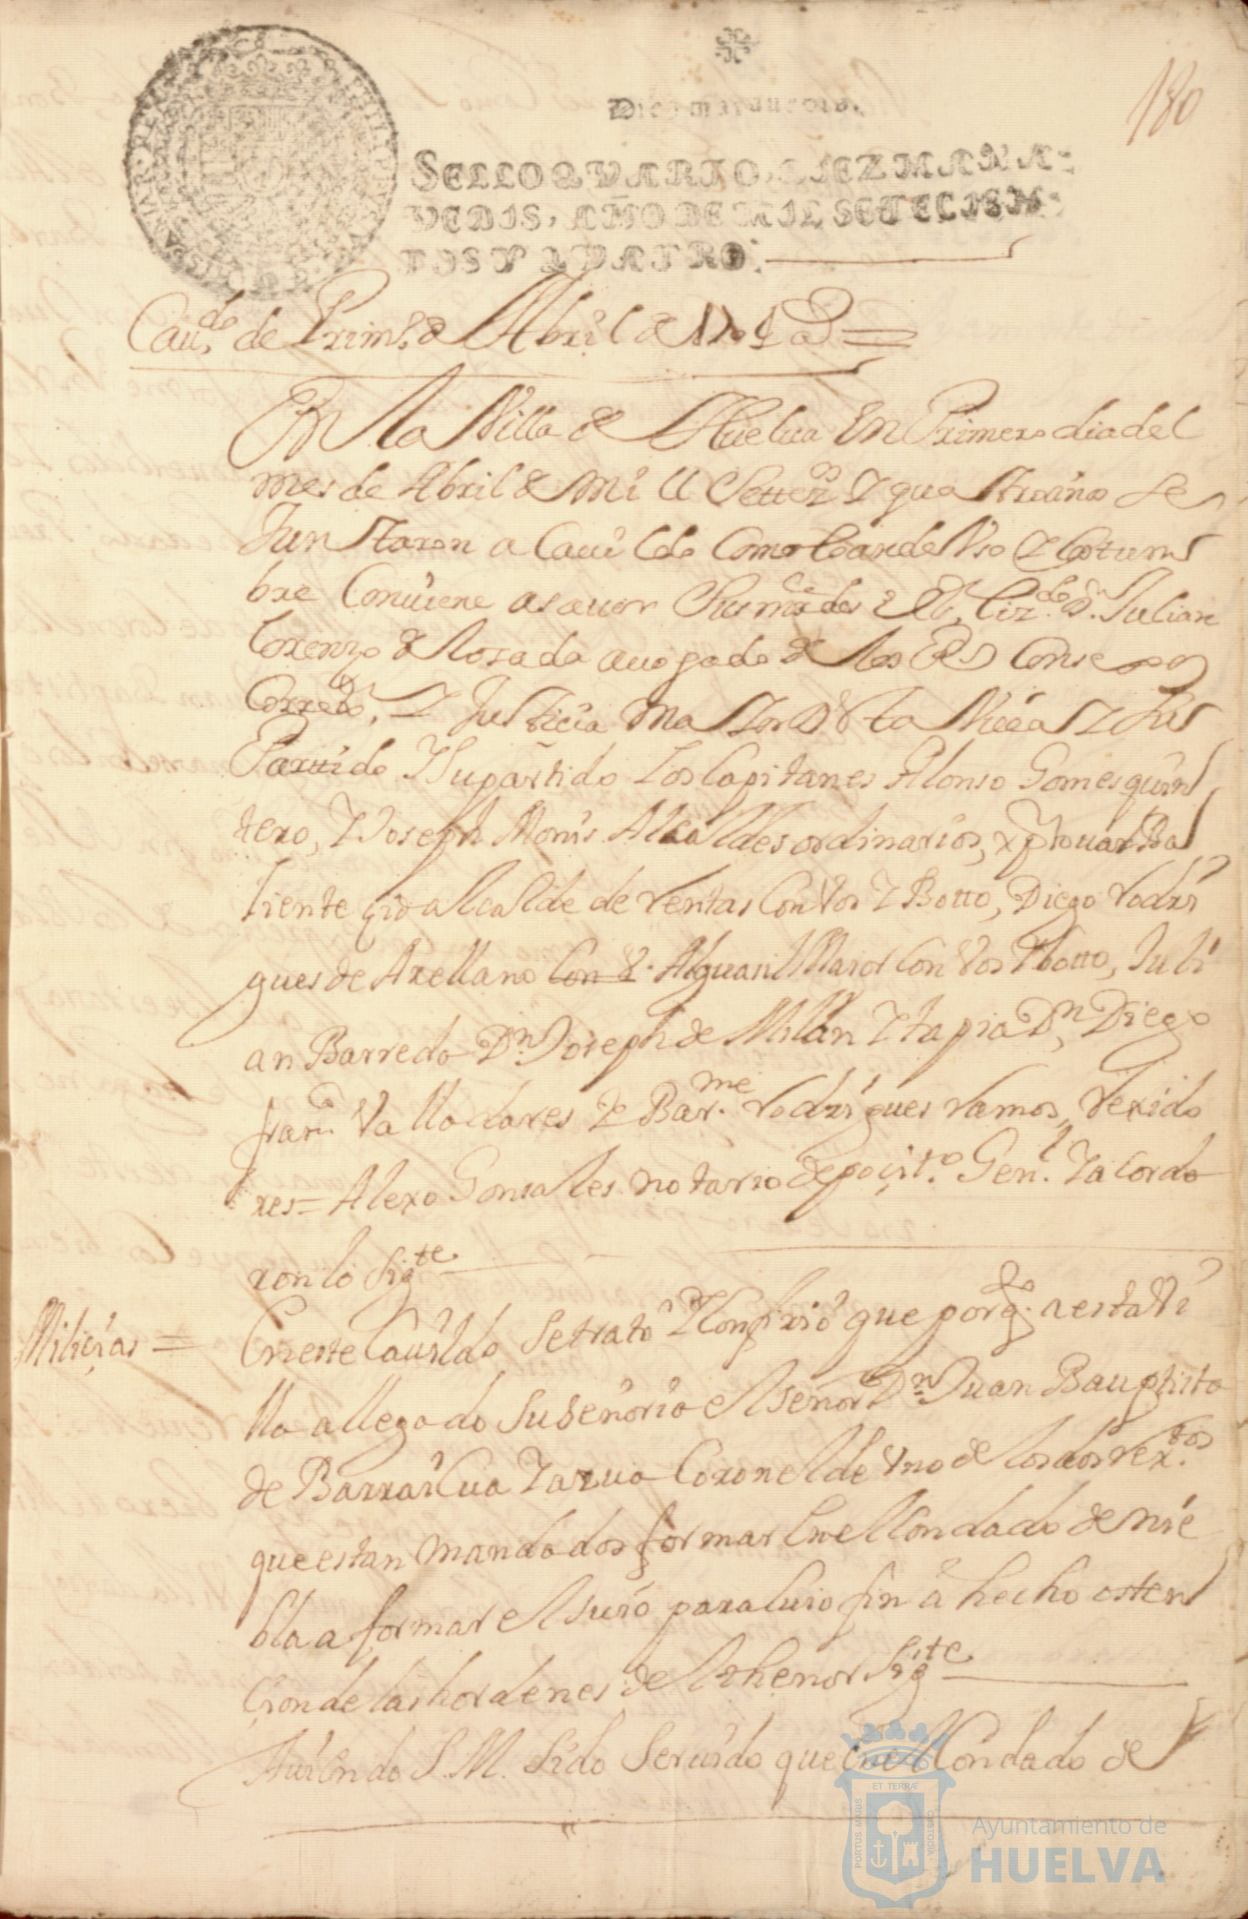 180
Diez marauedis.
SELLO QVARTO, DIEZ MARA-
VEDIS, AÑO DE MIL SETECIEN-
TOS Y QVATRO.
Cauᵈᵒ de Primᵒ de Abril de 1704 aˢ =
En la Villa de Huelua En Primero dia del
mes de Abril de Mill Settezᵒˢ y quatro años se
Juntaron a Cauildo Como lo an de Vso y Costum
bre Conuiene asauer sus mᶜᵉᵈᵉˢ el Lizᵈᵒ Dⁿ Julian
Lorenzo de losada auogado de los Rˢ Consexos
Corrᵒʳ y Justicia Maior Desta Villa y su
Partido y Su partido los Capitanes Alonso Gomes quin
tero, y Joseph Monis Alcaldes ordinarios, xptoual Ba
liente Alcalde de Ventas Con Vos y Botto, Diego Rodri
gues de Arellano Con V. Alguasil Maior Con Vos y botto, Juli
an Barredo Dⁿ Joseph de Millan y tapia Dⁿ Diego
franᶜᵒ Valladares y Barᵐᵉ Rodrigues Ramos, Rexido
res = Alexo Gonsales notario depoçitᵒ Genˡ y acorda
ron lo sigᵗᵉ
Miliçias =
En este Cauildo Se trato y Confirio que por qᵈᵒ a esta Vi
lla a llegado Su Señoria el señor Dⁿ Juan Bauptista
de Barrai Coronel de Vno de los dos rexᵗᵒˢ
que estan mandados formar En el Condado de nie
bla a formar el suio para Cuio fin a hecho osten
çion de las hordenes del thenor sigᵗᵉ
Auiendo S. M. Sido Seruido que En el Condado de
ET TERRÆ
PORTUS MARIS
CUSTODIA
Ayuntamiento de
HUELVA